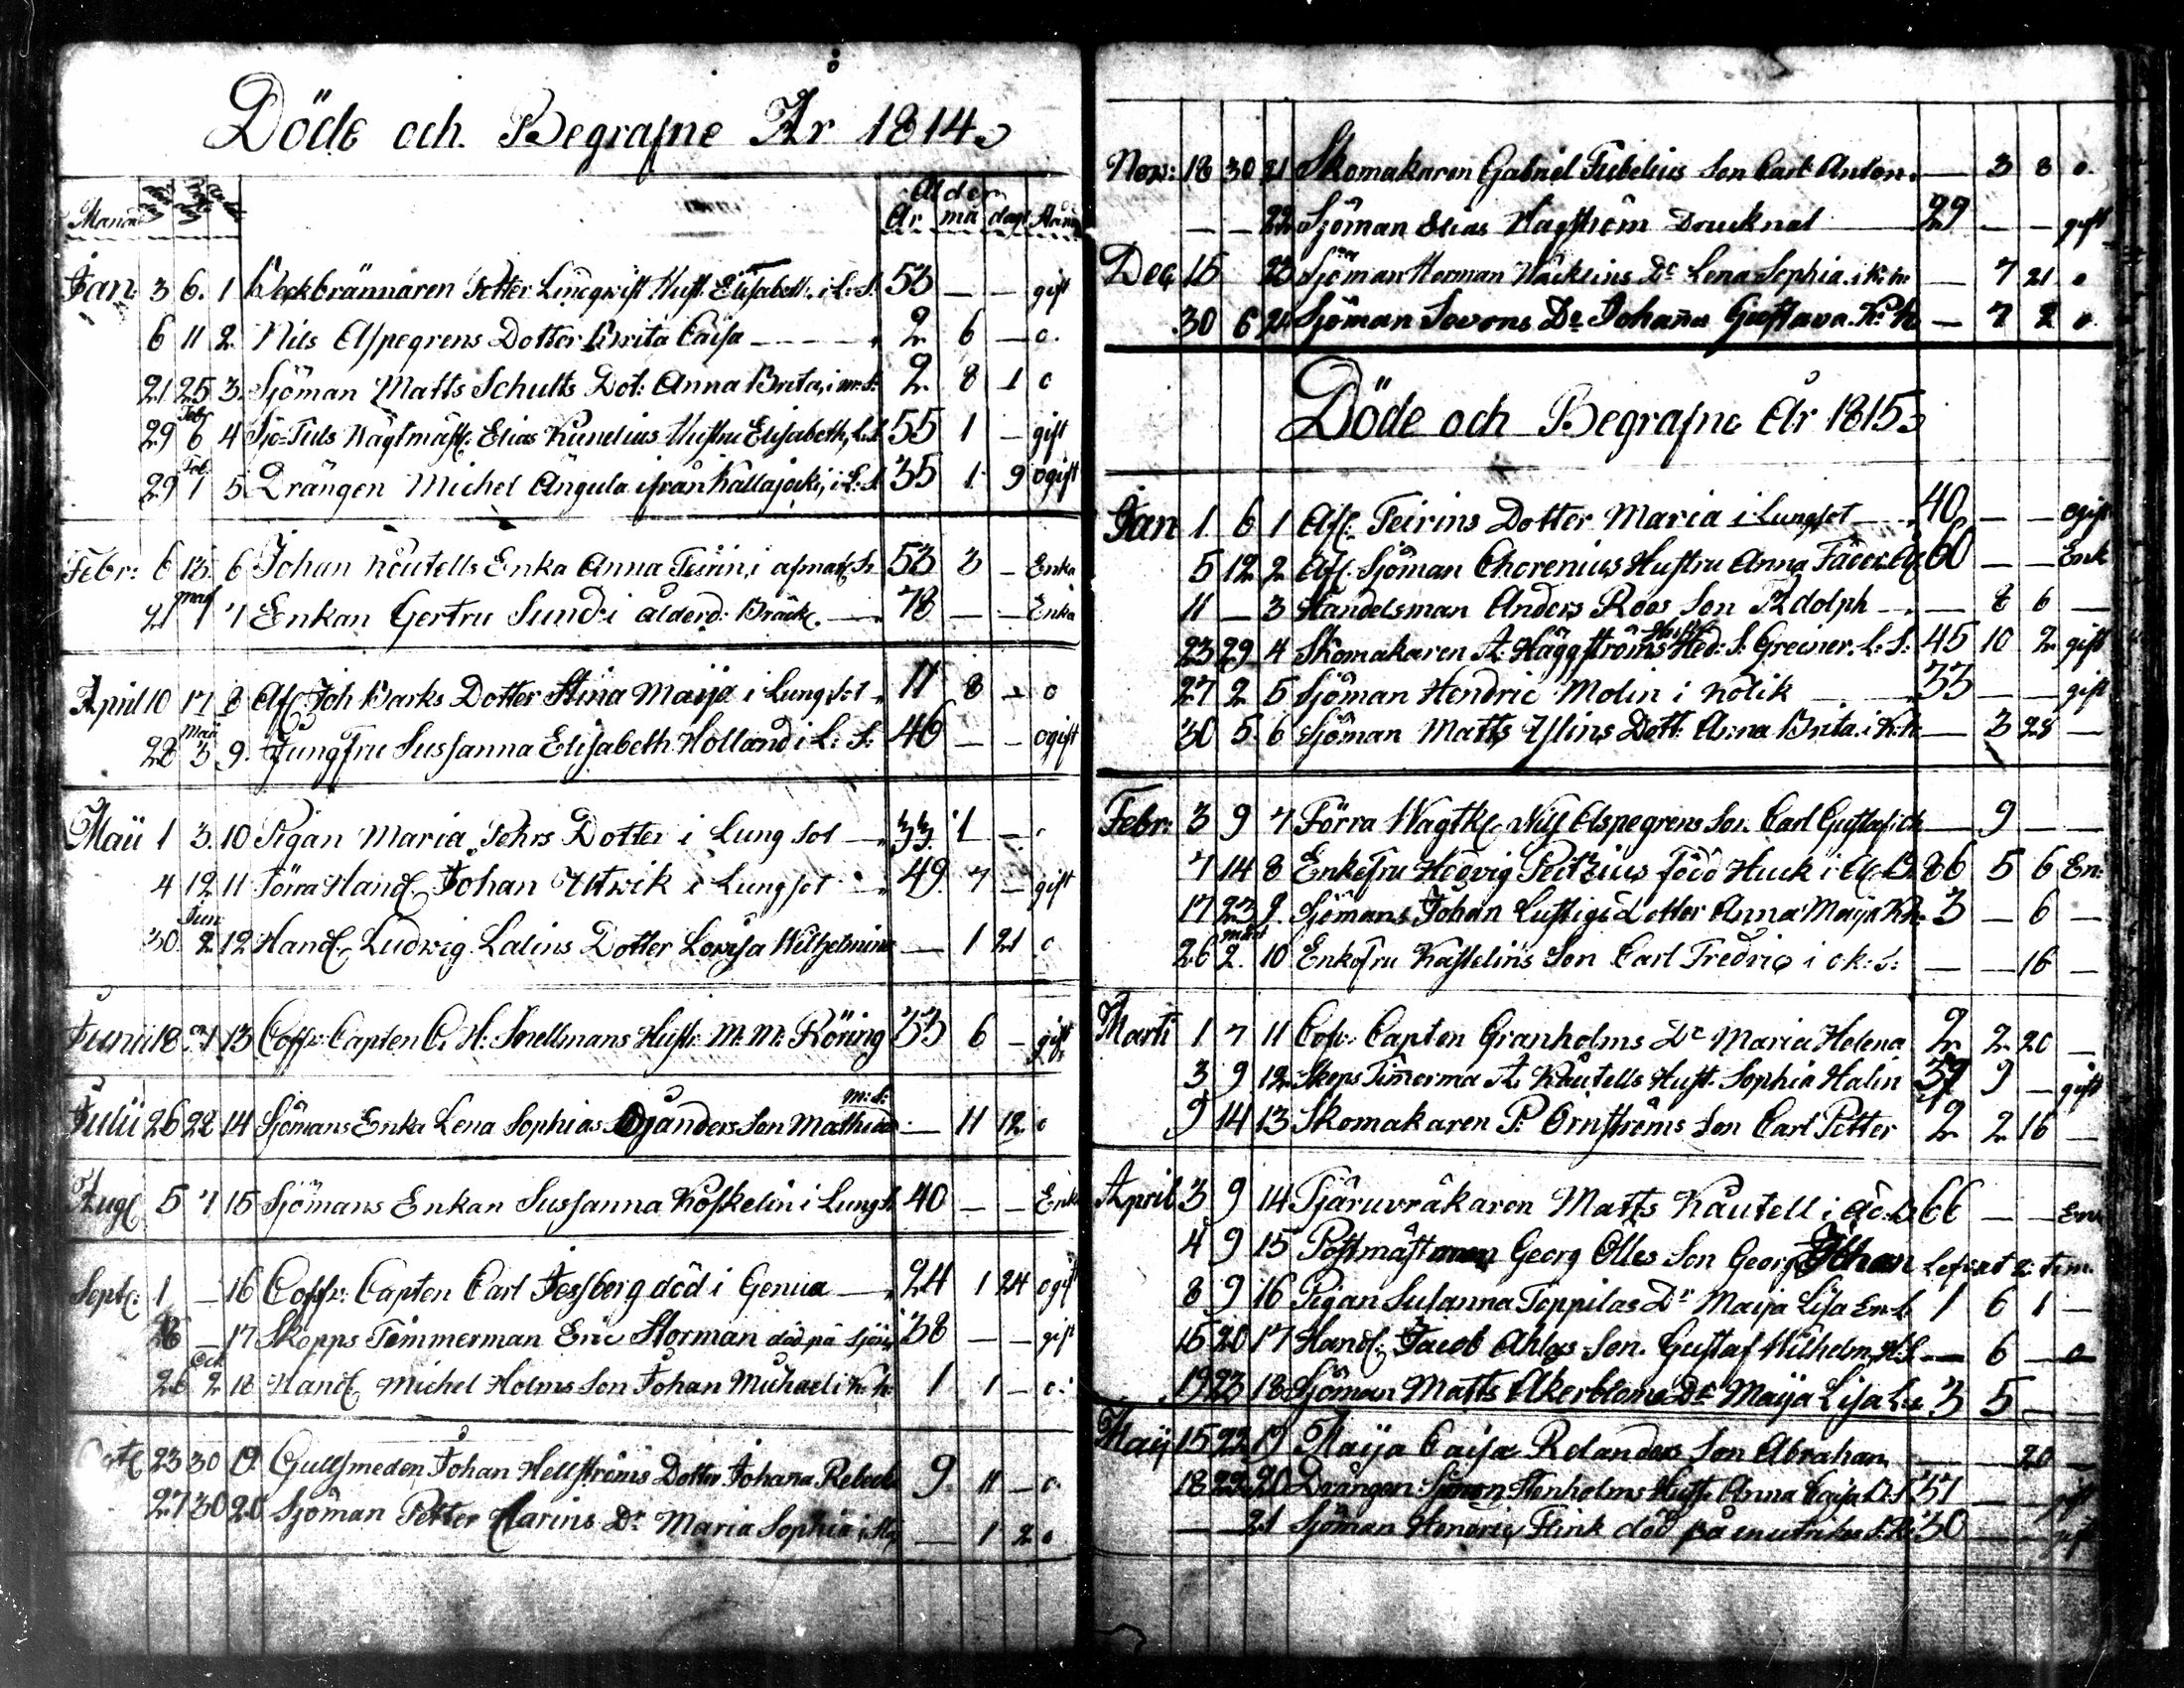 Döde och Begrafne År 1814
Månad Ålder
År må dag Stånd
Jan: 3 6. 1 Beckbrännaren Petter Lincqvist Hust: Elisabeth. i L: S. 53 — — gift
6 11 2 Nils Aspegrens Dotter Brita Caisa 2 6 — o.
21 25 3. Sjöman Matts Schults Dot: Anna Brita, i 2. 8 1 o
Febr
29 6 4 Sjö-Tuls Wagtmäst: Elias Kunelius Hustru Elisabeth, L. S. 55 1 — gift
Feb.
29 1 5. Drängen Michel Ängula ifrån Kallajocki, i L: S. 35 1 9 ogift
Febr: 6 13 6 Johan Kåutells Enka Anna Teirin, i 53 3 — Enka
21 1 7 Enkan Gertru Sund i ålderd: Bräck. — 78 — — Enka
April 10 17 8 Af. Joh Barks Dotter Stina Maija i Lungsot 11 8 — o
Maii
28 3 9. Jungfru Sussanna Elisabeth Holland i L: S: 46 — — ogift
Maii 1 3. 10 Pigan Maria Pehrs Dotter i Lung sot — 33. 1 —
4 12 11 Förra Handl. Johan Utwik i Lungsot 49. 7 — gift
Jun
30 2 12 Handl. Ludwig Lalins Dotter Lovisa Wilhelmina — 1 21 o
Junii 18 13 Coff: Capten C. H: Snellmans Hust: M: M: Röring 33 6 — gift
M: S:
Julii 26 22 14 Sjömans Enka Lena Sophias Djanders Son Mathias — 11 12 o
Aug. 5 7 15 Sjömans Enkan Sussanna Koskelin i Lungs. 40 — — Enk
Sept. 1 — 16 Coff: Capten Carl Jessberg död i Genua — 24 1 24 ogift
26 — 17 Skepps Timmerman Eric Storman död på Sjön 38 — — gift
Oct.
26 2 18 Handl. Michel Holms Son Johan Michael i K: h: 1 1 — o.
Oct. 23 30 19. Gullsmeden Johan Hellströms Dotter Johana Rebecka 9. 11 — o.
27 30 20 Sjöman Petter Clarins Dr Maria Sophia i — 1 2 o
Nov: 18 30 21 Skomakaren Gabriel Tubelius Son Carl Anton. — 3 8 o.
— — 22 Sjöman Elias Hagström Drucknat — 29 — — gift
Dec 15 23 Sjöman Herman Wäcklins Dr Lena Sophia. i K: h: — 7 21 o
30 6 24 Sjöman Sevons Dr Johana Gustava. K: h — 7 2 o.
Döde och Begrafne År 1815
Jan 1. 6 1 Afl. Teirins Dotter Maria i Lungsot — 40 — — ogift
5 12 2 Afl. Sjöman Chorenius Hustru Anna 60 — — Enk
11 — 3 Handelsman Anders Roos Son Adolph — — 8 6 —
Hustru
23 29 4 Skomakaren A: Häggströms Hed: S. Greiner. L: S: 45 10 2 gift
27 2 5 Sjöman Hendric Molin i Kolik — 33 — — gift
30 5. 6 Sjöman Matts Yslins Dott: Anna Brita. i K: h — 3 28 —
Febr: 3 9 7 Förra Wagtk. Nils Aspegrens Son. Carl Gustaf i — 9 — —
7 14 8 Enkefru Hedvig Peitzius född Huck i 86 5 6 En:
17 23 9. Sjömans Johan Lustigs Dotter Anna Maija K: h: 3 — 6 —
Mart
26 2. 10 Enkefru Kastelins Son Carl Fredric i — — 16 —
Marti 1 7 11 Cof: Capten Granholms Dr Maria Helena 2 2 20 —
3 9 12 Skeps Timerma A. Kåutells Hust. Sophia Halin 39 9 — gift
9 14 13 Skomakaren P: Örnströms Son Carl Petter 2 2 16 —
April 3 9 14 Tjäruvräkaren Matts Kåutell i 66 — — Enk
4 9 15 Postmästaren Georg Olles Son Georg Johan Lefvat 2 tim.
8 9 16 Pigan Susanna Toppilas Dr Maija Lisa 1 6 1 —
15 20 17 Handl. Jacob Ahlos Son. Gustaf Wilhelm — 6 — o
19 23 18 Sjöman Matts Åkerbloms Dr Maija Lisa 3 5 — —
Maij 15 22 19 Maija Caisa Relanders Son Abraham — — 20 —
18 22 20 Drängen Simon Stenholms Hust. Anna Caisa 37 — — gift
— — 21 Sjöman Hendric Flink död på 30 — — gift